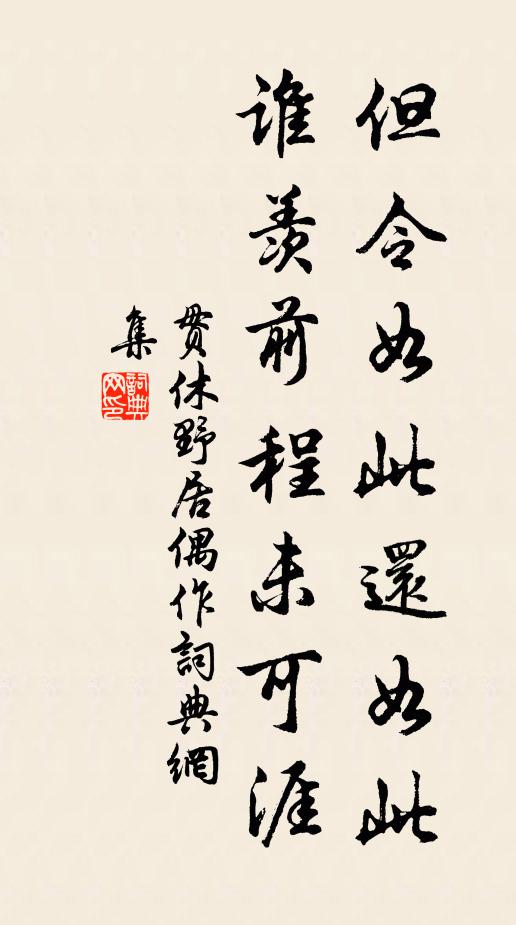 但令如此還如此
誰羨前程未可涯
貫休野居偶作詞典網
集
詞典
网印